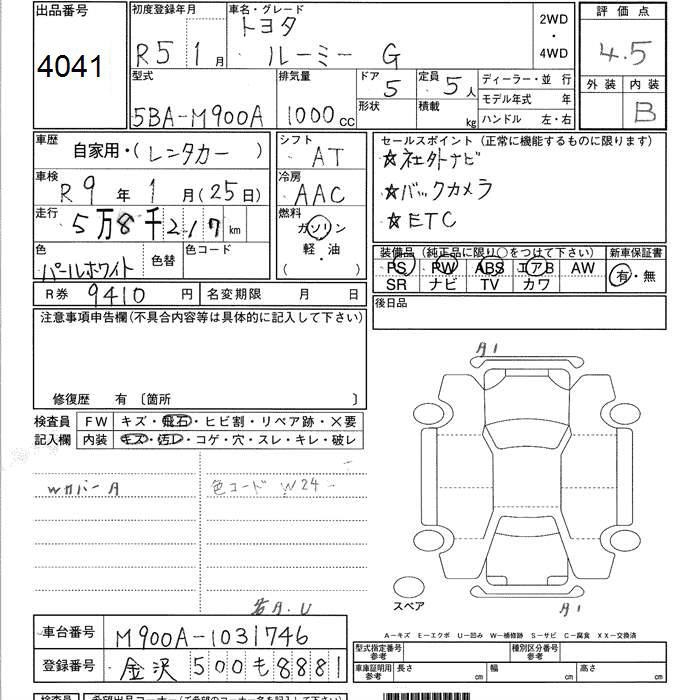 出品番号
4041
初度登録年月
R5 1月
車名・グレード
トヨタ
ルーミー G
2WD
・
4WD
評価点
4.5
外装 内装
B
型式
5BA-M900A
排気量
1000 cc
ドア
5
形状
定員
5人
積載
kg
ディーラー・並 行
モデル年式 年
ハンドル 左・右
車歴
自家用・(レンタカー )
シフト
AT
車検
R9年 1月(25日)
冷房
AAC
走行
5万8千217km
燃料
ガソリン
軽・油
( )
色
パールホワイト
色替
色コード
セールスポイント (正常に機能するものに限ります)
☆社外ナビ
☆バックカメラ
☆ETC
装備品 (純正品に限り○をつけて下さい)
PS PW ABS エアB AW
SR ナビ TV カワ
新車保証書
有・無
R券 9410 円
名変期限 月 日
後日品
注意事項申告欄(不具合内容等は具体的に記入して下さい)
修復歴 有 〔箇所 〕
検査員
記入欄
FW キズ・飛石・ヒビ割・リペア跡・×要
内装 キズ・汚レ・コゲ・穴・スレ・キレ・破レ
色コード W24
A1
A1
スペア
A−キズ E−エクボ U−凹み W−補修跡 S−サビ C−腐食 XX−交換済
車台番号 M900A-1031746
登録番号 金沢 500 も 8881
型式指定番号
参考
種別区分番号
参考
車庫証明用
参考
長さ cm
幅 cm
高さ cm
検査員
希望出品コーナー